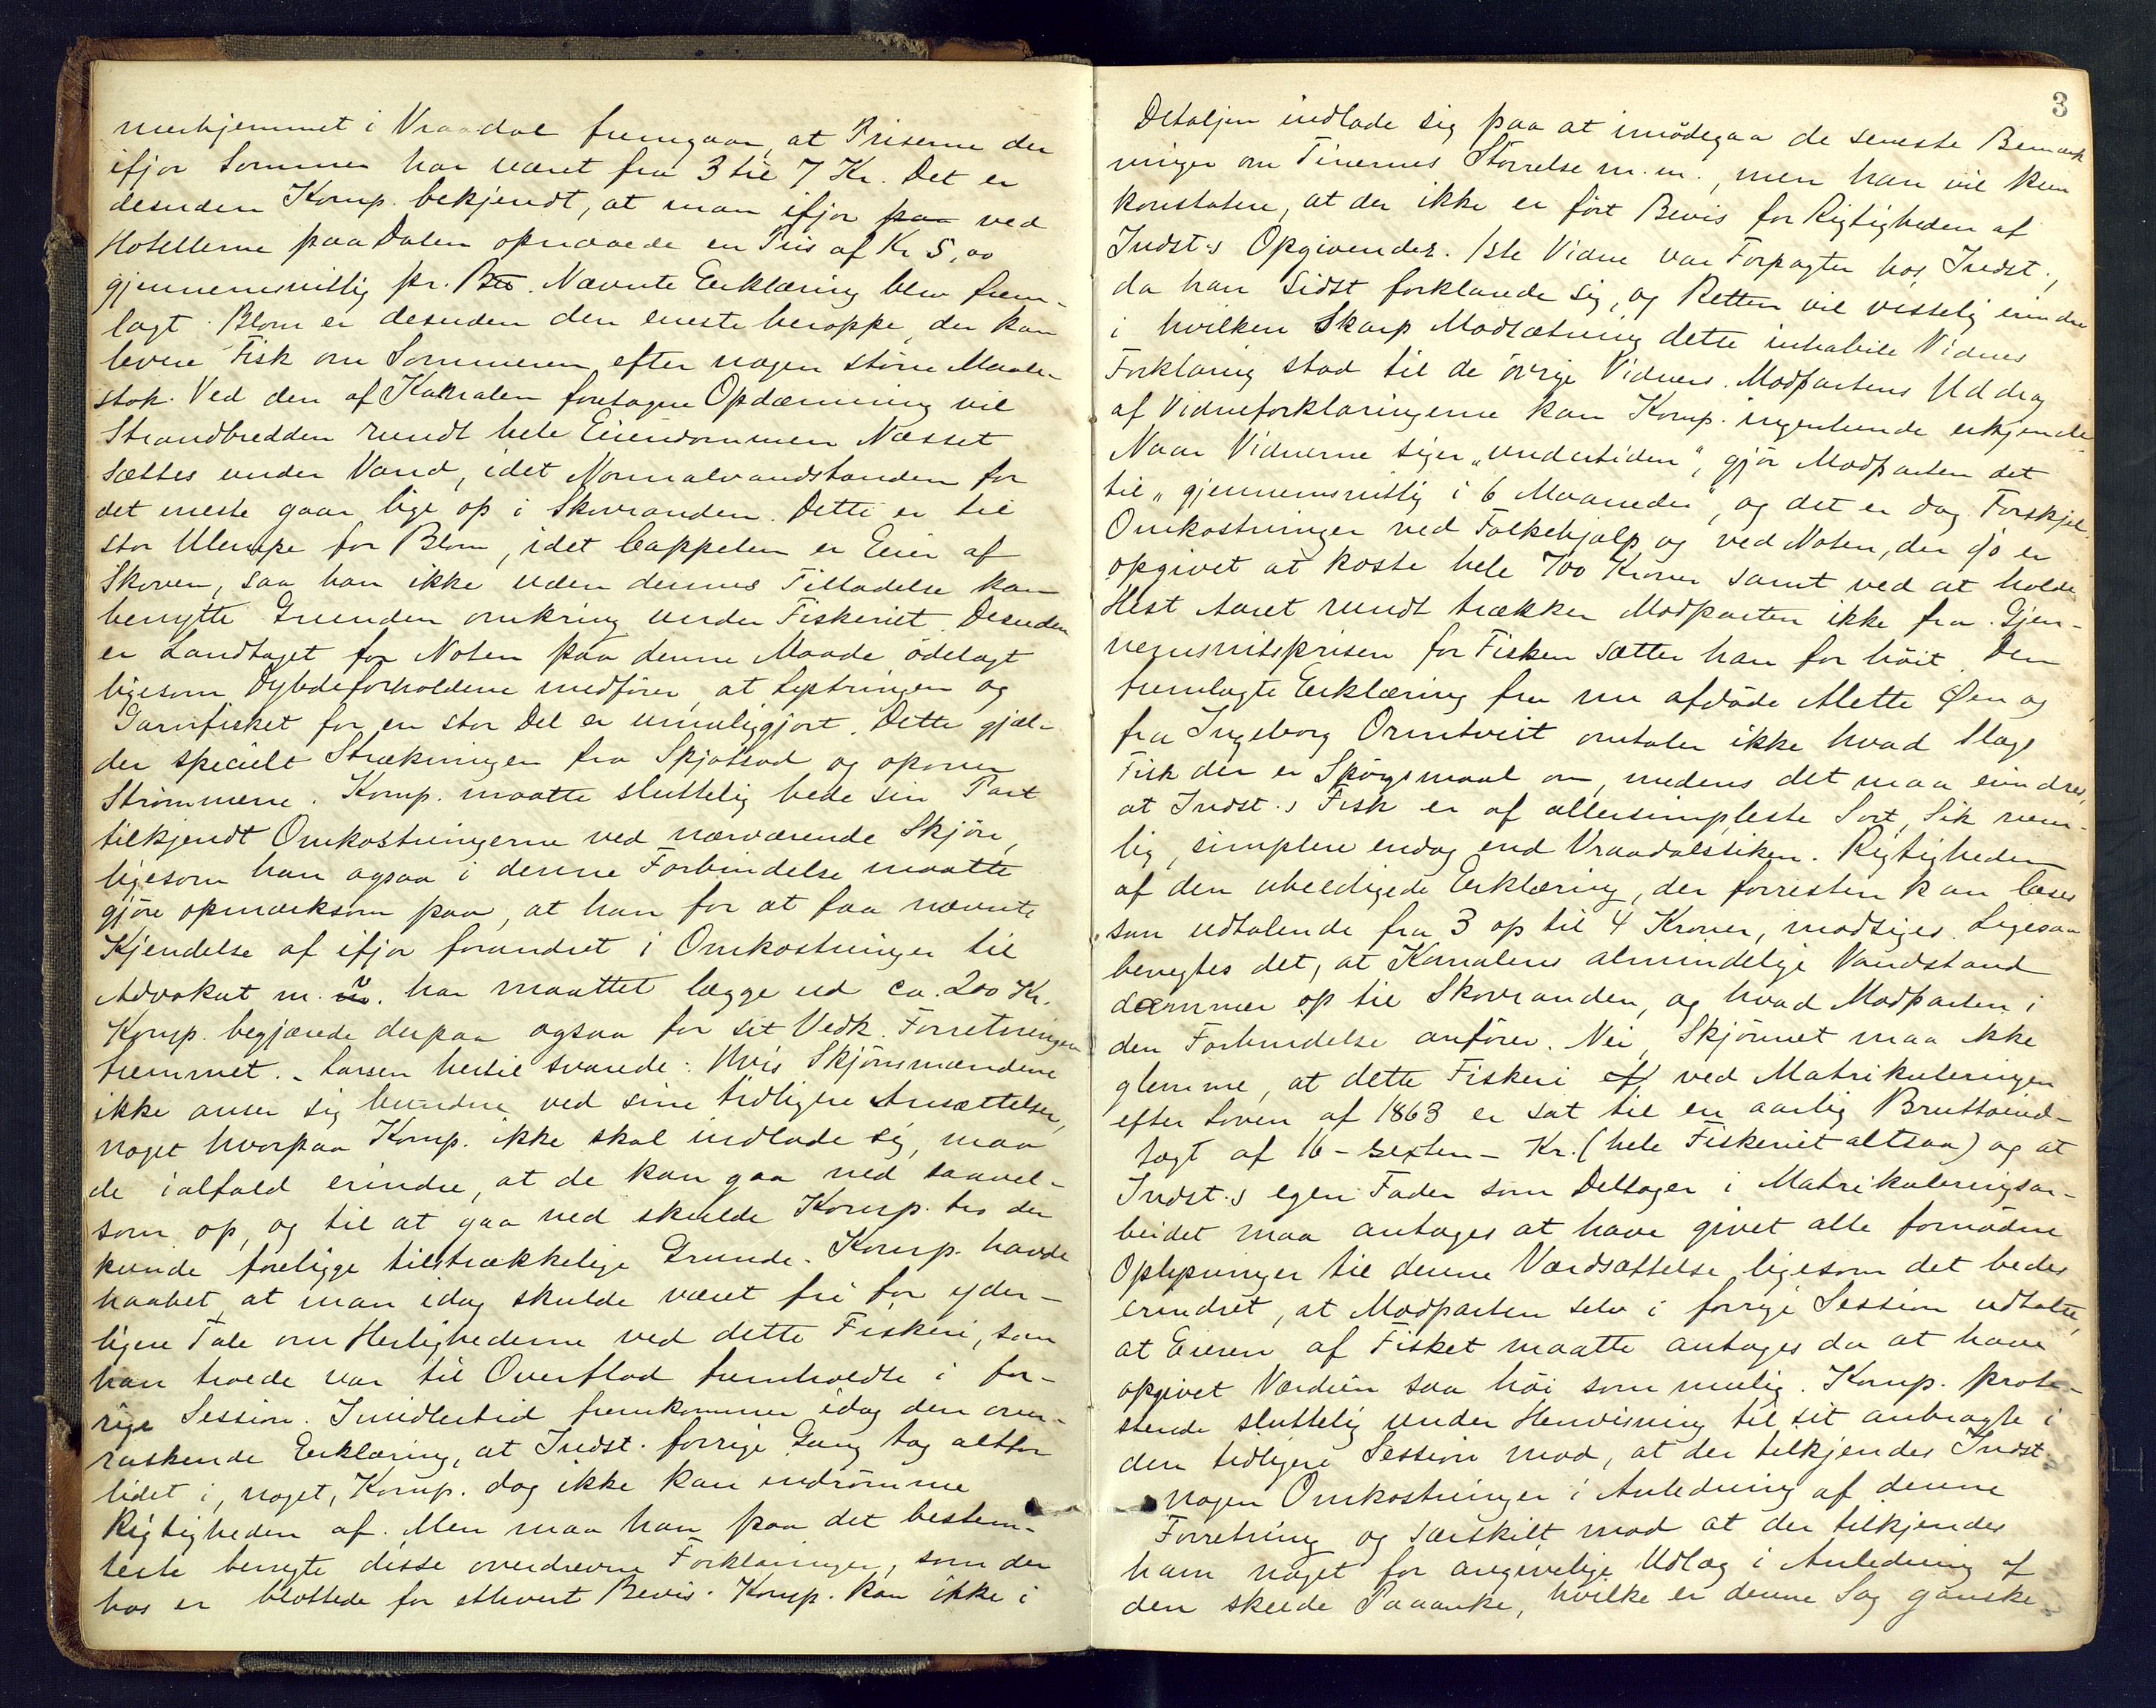 merhjemmet i Vraadal fremgaar, at Priserne der
ifjor Sommer har været fra 3 til 7 Kr. Det er
desuden Komp. bekjendt, at man ifjor paa ved
Hotellerne paa Dalen opnaaede en Pris af Kr 5,00
gjennemsnitlig pr. Bts. Nævnte Erklæring blev frem-
lagt. Blom er desuden den eneste heroppe, der kan
levere Fisk om Sommeren efter nogen større Maale-
stok. Ved den af Kanalen foretagne Opdæmning vil
Strandbredden rundt hele Eiendommen Næsset
sættes under Vand, idet Normalvandstanden for
det meste gaar lige op i Skovranden. Dette er til
stor Ulempe for Blom, idet Cappelen er Eier af
Skoven, saa han ikke uden dennes Tilladelse kan
benytte Grunden omkring under Fiskeriet. Desuden
er Landtaget for Noten paa denne Maade ødelagt
ligesom Dybdeforholdene medfører, at Lystringen og
Garnfisket for en stor Del er umuliggjort. Dette gjæl-
der specielt Strækningen fra Spjotsod og opover
Strømmene. Komp. maatte sluttelig bede sin Part
tilkjendt Omkostningerne ved nærværende Skjøn,
ligesom han ogsaa i denne Forbindelse maatte
gjøre opmærksom paa, at han for at faa nævnte
Kjendelse af ifjor forandret i Omkostninger til
Advokat m. v. har maattet lægge ud ca. 200 Kr.
Komp. begjærede derpaa ogsaa for sit Vedk. Forretningen
fremmet. - Larsen hertil svarede: Hvis Skjønsmændene
ikke anser sig bundne ved sine tidligere Ansættelser,
noget hvorpaa Komp. ikke skal indlade sig, maa
de ialfald erindre, at de kan gaa ned saavel-
som op, og til at gaa ned skulde Komp. tro der
kunde foreligge tilstrækkelige Grunde. Komp. havde
haabet, at man idag skulde været fri for yder-
ligere Tale om Herlighederne ved dette Fiskeri, som
han troede var til Overflod fremholdte i for-
rige Session. Imidlertid fremkommer idag den over-
raskende Erklæring, at Indst. forrige Gang tog altfor
lidet i, noget, Komp. dog ikke kan indrømme
Rigtigheden af. Men maa han paa det bestem-
teste benegte disse overdrevne Forklaringer, som der
hos er blottede for ethvert Bevis. Komp. kan ikke i
3
Detaljen indlade sig paa at imødegaa de seneste Bemærk
ninger om Tinernes Størrelse m.m., men han vil kun
konstatere, at der ikke er ført Bevis for Rigtigheden af
Indst.s Opgivender. 1ste Vidne var Forpagter hos Indst.,
da han sidst forklarede sig, og Retten vil visselig erindre
i hvilken skarp Modsætning dette inhabile Vidnes
Forklaring stod til de øvrige Vidners. Modpartens Uddrag
af Vidneforklaringerne kan Komp. ingenlunde erkjende.
Naar Vidnerne siger „undertiden", gjør Modparten det
til „gjennemsnitlig i 6 Maaneder", og det er dog Forskjel.
Omkostninger ved Folkehjælp og ved Noten, der jo er
opgivet at koste hele 700 Kroner samt ved at holde
Hest Aaret rundt trækker Modparten ikke fra. Gjen-
nemsnitsprisen for Fisken sætter han for høit. Den
fremlagte Erklæring fra nu afdøde Mette Øen og
fra Ingeborg Ormtveit omtaler ikke hvad Slags
Fisk der er Spørgsmaal om, medens det maa erindres,
at Indst.s Fisk er af allersimpleste Sort, Sik nem-
lig, simplere endog end Vraadalssiken. Rigtigheden
af den ubeedigede Erklæring, der forresten kan læses
som udtalende fra 3 op til 4 Kroner, modsiges. Ligesaa
benegtes det, at Kanalens almindelige Vandstand
dæmmer op til Skovranden, og hvad Modparten i
den Forbindelse anfører. Nei, Skjønnet maa ikke
glemme, at dette Fiskeri ef ved Matrikuleringen
efter Loven af 1863 er sat til en aarlig Bruttoind-
tægt af 16 - sexten - Kr. (hele Fiskeriet altsaa) og at
Indst.s egen Fader som Deltager i Matrikuleringsar-
beidet maa antages at have givet alle fornødne
Oplysninger til denne Værdsættelse, ligesom det bedes
erindret, at Modparten selv i forrige Session udtalte,
at Eieren af Fisket maatte antages da at have
opgivet Værdien saa høi som mulig. Komp. prote-
sterede sluttelig under Henvisning til sit anbragte i
den tidligere Session mod, at der tilkjendes Indst.
nogen Omkostninger i Anledning af denne
Forretning og særskilt mod at der tilkjendes
ham noget for angivelige Udlæg i Anledning af
den skeede Paaanke, hvilke er denne Sag ganske